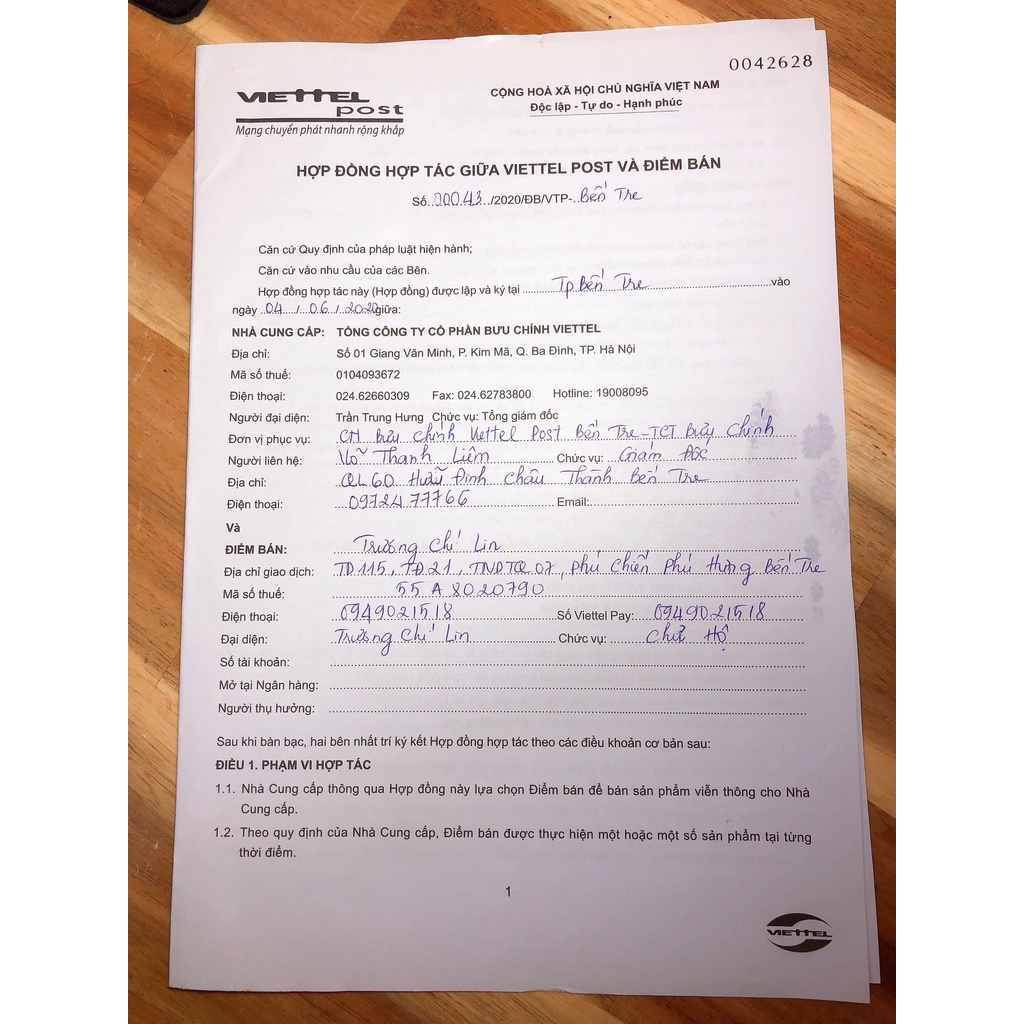 0042628
VIETTEL
post
Mạng chuyển phát nhanh rộng khắp
CỘNG HOÀ XÃ HỘI CHỦ NGHĨA VIỆT NAM
Độc lập - Tự do - Hạnh phúc
HỢP ĐỒNG HỢP TÁC GIỮA VIETTEL POST VÀ ĐIỂM BÁN
Số..00043../2020/ĐB/VTP-..Bến Tre
Căn cứ Quy định của pháp luật hiện hành;
Căn cứ vào nhu cầu của các Bên.
Hợp đồng hợp tác này (Hợp đồng) được lập và ký tại ........Tp Bến Tre........vào
ngày ..04.../..06../..2020giữa:
NHÀ CUNG CẤP: TỔNG CÔNG TY CỔ PHẦN BƯU CHÍNH VIETTEL
Địa chỉ: Số 01 Giang Văn Minh, P. Kim Mã, Q. Ba Đình, TP. Hà Nội
Mã số thuế: 0104093672
Điện thoại: 024.62660309 Fax: 024.62783800 Hotline: 19008095
Người đại diện: Trần Trung Hưng Chức vụ: Tổng giám đốc
Đơn vị phục vụ: CN Bưu chính Viettel Post Bến Tre-TCT Bưu Chính
Người liên hệ: Võ Thanh Liêm Chức vụ: Giám Đốc
Địa chỉ: QL60 Hữu Định Châu Thành Bến Tre
Điện thoại: 0972477766 Email:
Và
ĐIỂM BÁN: Trương Chí Lin
Địa chỉ giao dịch: TĐ115, TĐ21, TNDTQ07, Phú Chiến Phú Hưng Bến Tre
Mã số thuế: 55 A 8020790
Điện thoại: 0949021518 Số Viettel Pay: 0949021518
Đại diện: Trương Chí Lin Chức vụ: Chủ Hộ
Số tài khoản:
Mở tại Ngân hàng:
Người thụ hưởng:
Sau khi bàn bạc, hai bên nhất trí ký kết Hợp đồng hợp tác theo các điều khoản cơ bản sau:
ĐIỀU 1. PHẠM VI HỢP TÁC
1.1. Nhà Cung cấp thông qua Hợp đồng này lựa chọn Điểm bán để bán sản phẩm viễn thông cho Nhà
Cung cấp.
1.2. Theo quy định của Nhà Cung cấp, Điểm bán được thực hiện một hoặc một số sản phẩm tại từng
thời điểm.
1
VIETTEL